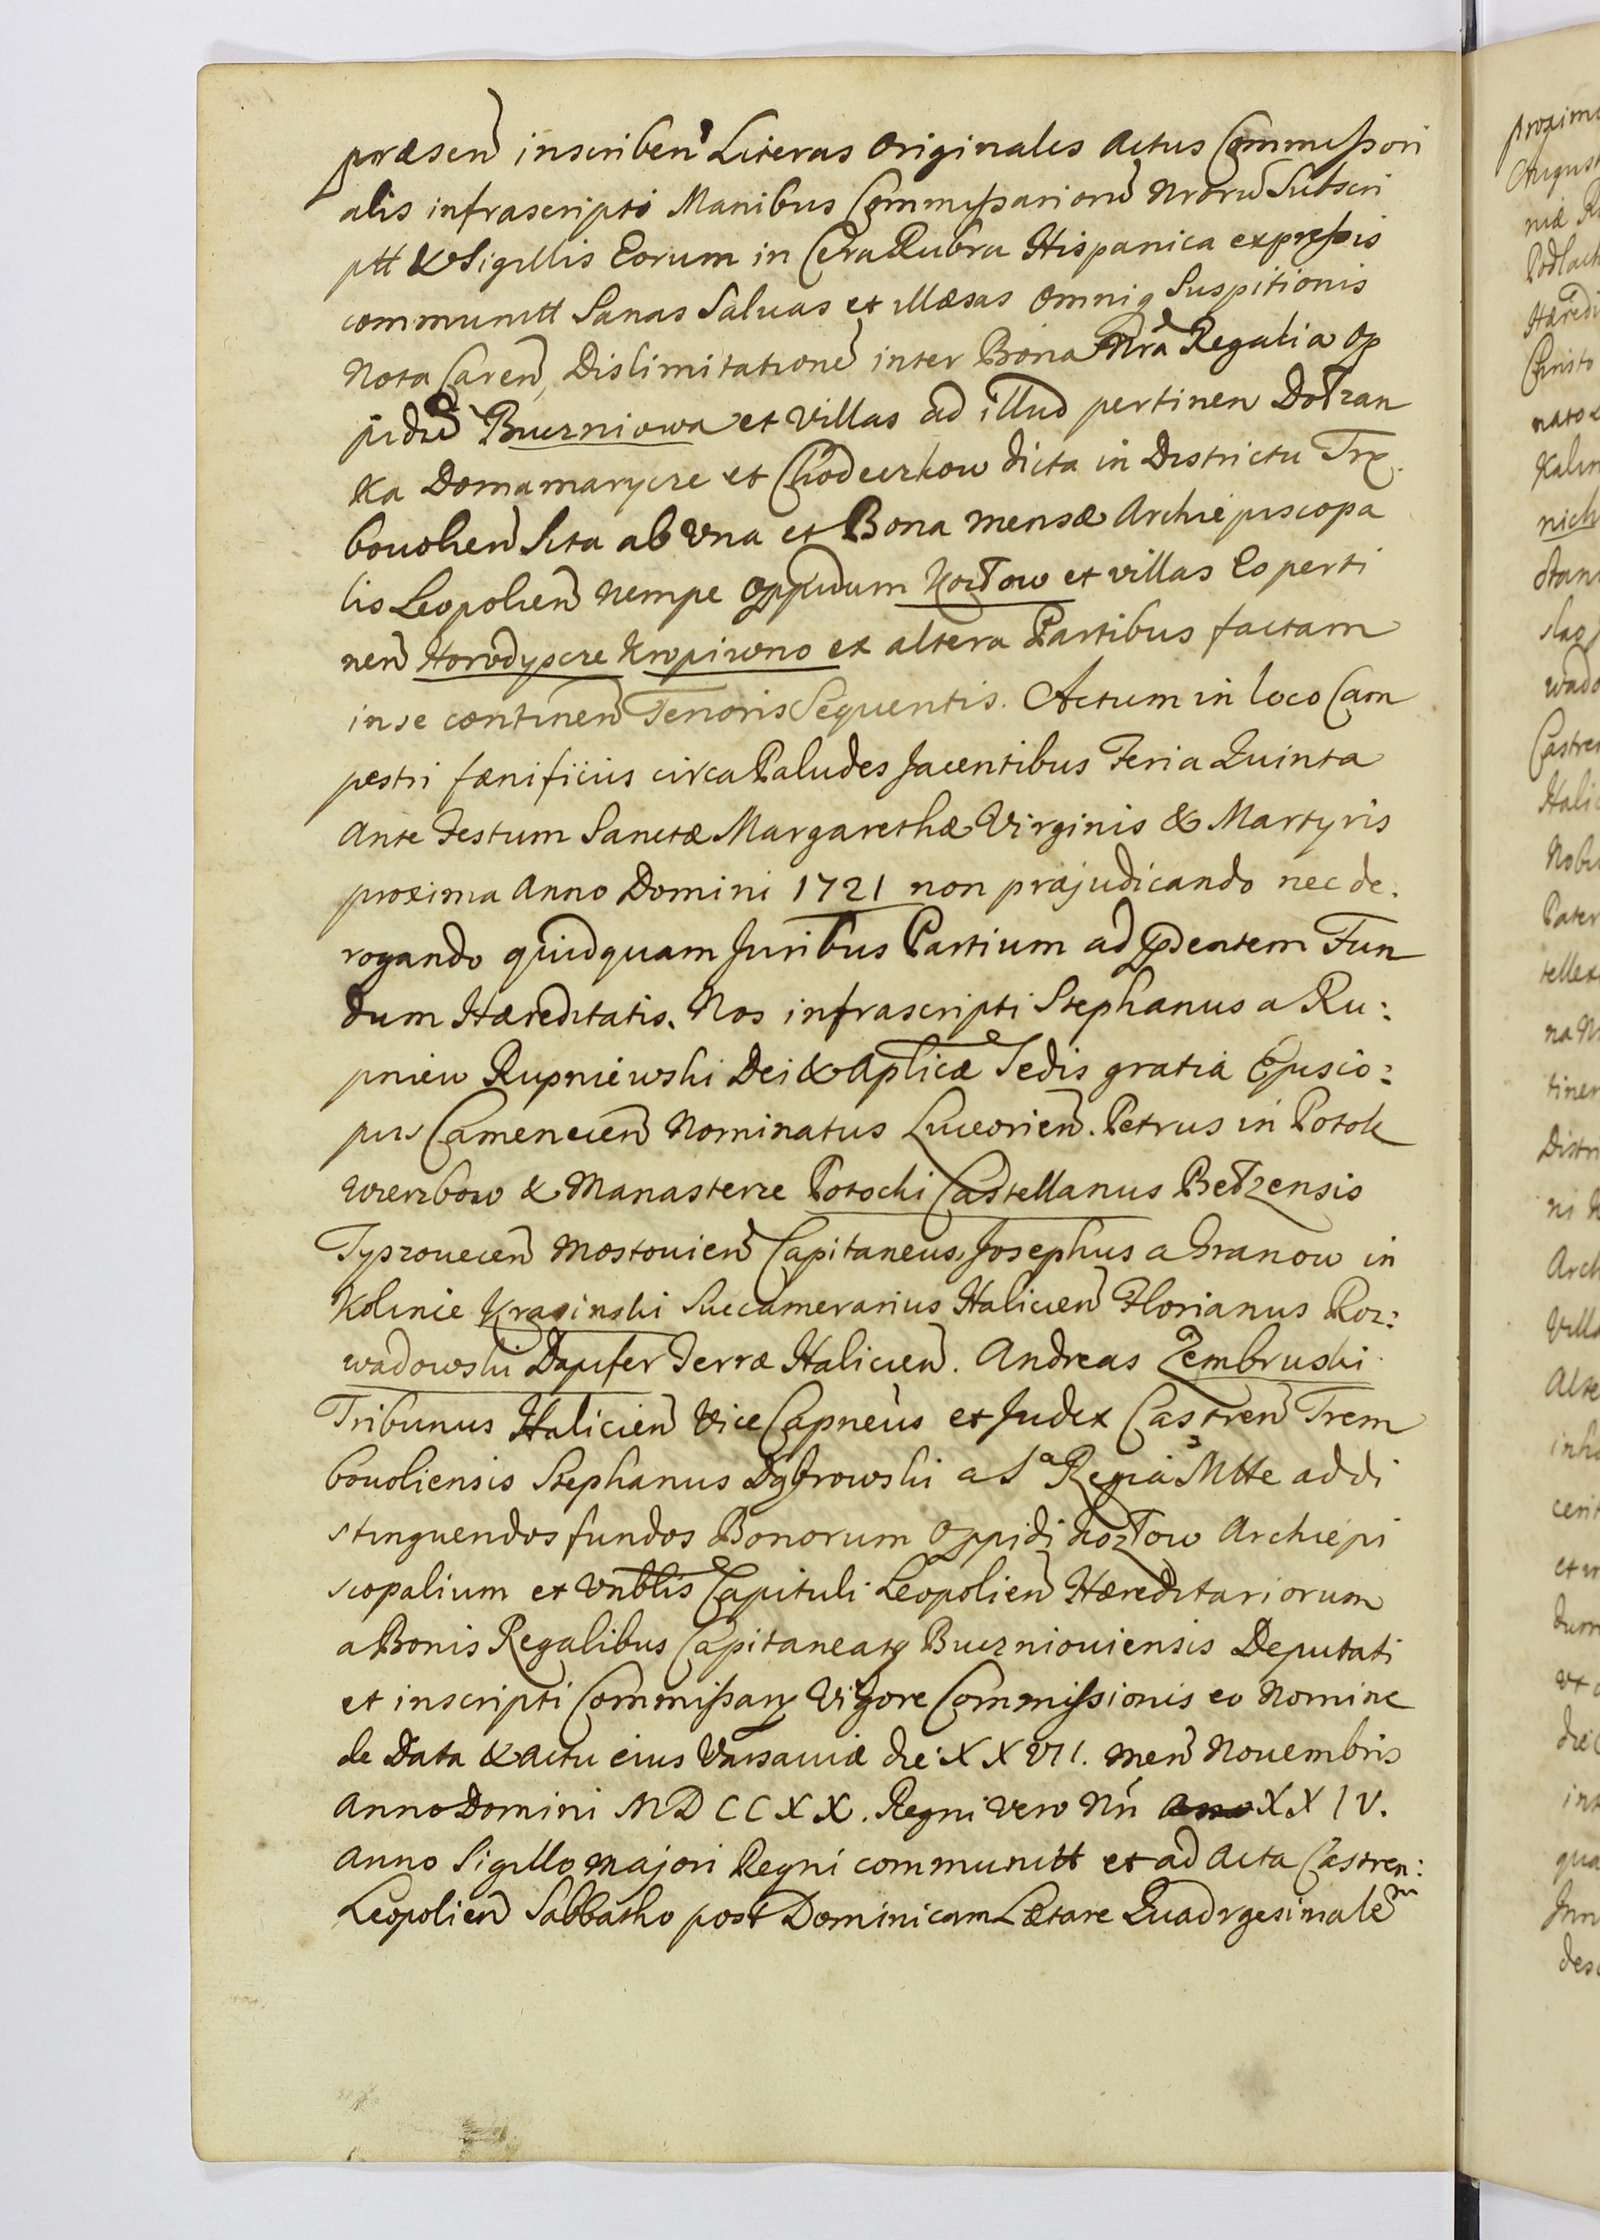 præsen inscriben Literas Originales Actus Commissori
alis infrascripti Manibus Commissarioru Nroru Subscri
ptt & Sigillis Eorum in Cera Rubra Hispanica expressis
communitt Sanas Saluas et illæsas Omniq Suspitionis
Nota Caren, Dislimitatione inter Bona Nra Regalia Op
pidu Buczniowa et Villas ad illud pertinen Dołzan
Ka Domamarycze et Chodeczkow dicta in Districtu Tre
bouolien Sita ab Vna et Bona mensæ Archiepiscopa
lis Leopolien Nempe Oppidum Kozłow et villas Eo perti
nen Horodyscze Kropiwno ex altera Partibus factam
in se continen Tenoris Sequentis. Actum in loco Cam
pestri fænificiis circa Paludes Jacentibus Feria Quinta
Ante Festum Sanctæ Margarethæ Virginis & Martyris
proxima Anno Domini 1721 non præjudicando nec de.
rogando quidquam Juribus Partium ad Fun
dum Hæreditatis. Nos infrascripti Stephanus a Ru:
pniew Rupniewski Dei & Aplicæ Sedis gratia Episco:
pus Camenecen Nominatus Luceorien. Petrus in Potok
Wierzbow & Manasterze Potocki Castellanus Bełzensis
Tyszouecen Mostouien Capitaneus, Josephus a Granow in
Kolince Krasinski Succamerarius Halicien Florianus Roz:
wadowski Dapifer Terræ Halicien. Andreas Zembruski
Tribunus Halicien Vice Capneus et Judex Castren Trem
bouoliensis Stephanus Dąbrowski a Sa Regia Mtte ad di
stinguendos fundos Bonorum Oppidi Kozłow Archiepi
scopalium et Vnblis Capituli Leopolien Hæreditariorum
a Bonis Regalibus Capitaneatq Buczniouiensis Deputati
et inscripti Commissary Vigore Commissionis eo Nomine
de Data & Actu eius Varsauiæ die XXVII. men Nouembris
Anno Domini MDCCXX. Regni vero Nri XXIV.
Anno Sigillo majori Regni communitt et ad Acta Castren:
Leopolien Sabbatho post Dominicam Lætare Quadrgesimalem